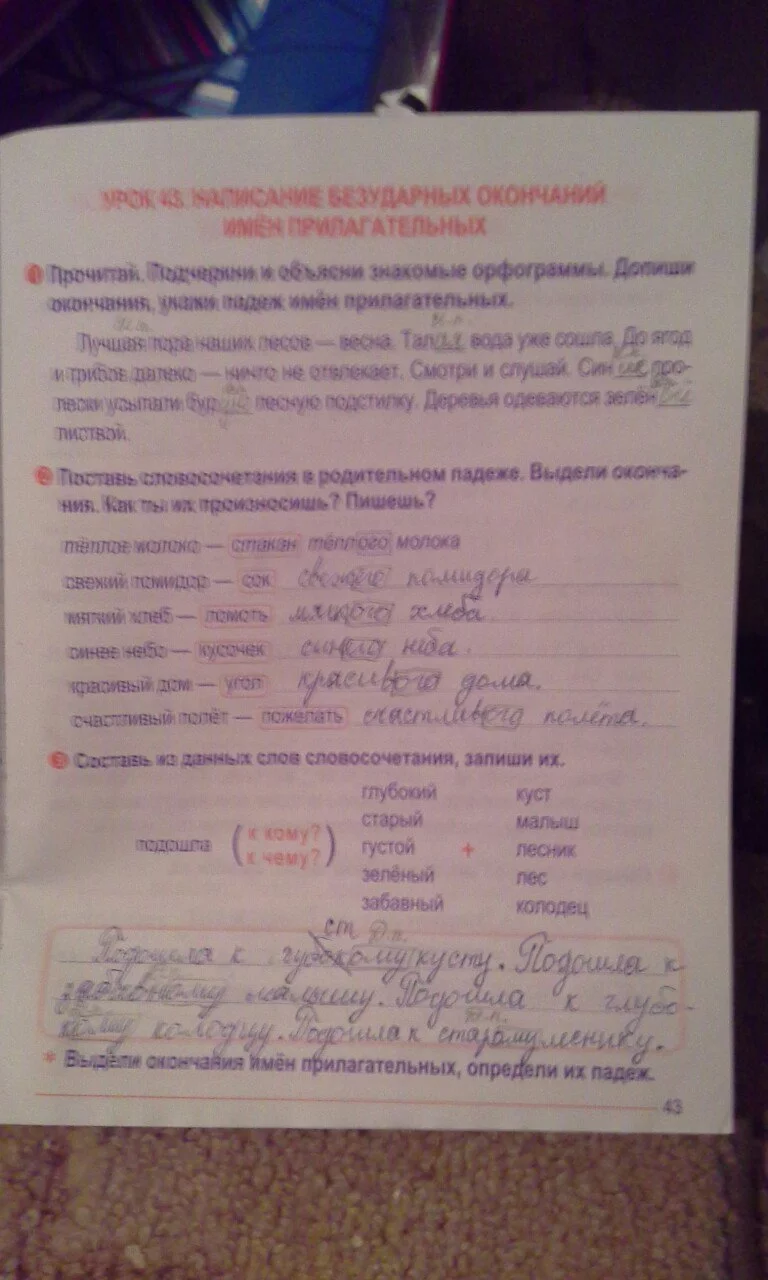 УРОК 43. НАПИСАНИЕ БЕЗУДАРНЫХ ОКОНЧАНИЙ
ИМЁН ПРИЛАГАТЕЛЬНЫХ
1 Прочитай. Подчеркни и объясни знакомые орфограммы. Допиши
окончания, укажи падеж имён прилагательных.
Лучшая пора наших лесов — весна. Талая вода уже сошла. До ягод
и грибов далеко — ничто не отвлекает. Смотри и слушай. Синие про-
лески усыпали бурую лесную подстилку. Деревья одеваются зелёной
листвой.
2 Поставь словосочетания в родительном падеже. Выдели оконча-
ния. Как ты их произносишь? Пишешь?
тёплое молоко — стакан тёплого молока
свежий помидор — сок свежего помидора
мягкий хлеб — ломоть мягкого хлеба.
синее небо — кусочек синего неба.
красивый дом — угол красивого дома.
счастливый полёт — пожелать счастливого полёта.
3 Составь из данных слов словосочетания, запиши их.
глубокий куст
старый малыш
подошла ( к кому? к чему? ) густой + лесник
зелёный лес
забавный колодец
ст Д.п.
Подошла к губокому кусту. Подошла к
забавному малышу. Подошла к глубо-
кому колодцу. Подошла к старому леснику.
* Выдели окончания имён прилагательных, определи их падеж.
43